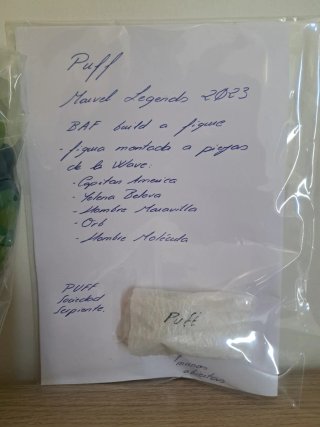 Puff
Marvel Legends 2023
BAF build a figure
- figura montada a piezas
de la Wave:
- Capitan America
- Yelena Belova
- Hombre Maravilla
- Orb
- Hombre Molécula
PUFF
Sociedad
Serpiente.
Puff
manos
abiertas